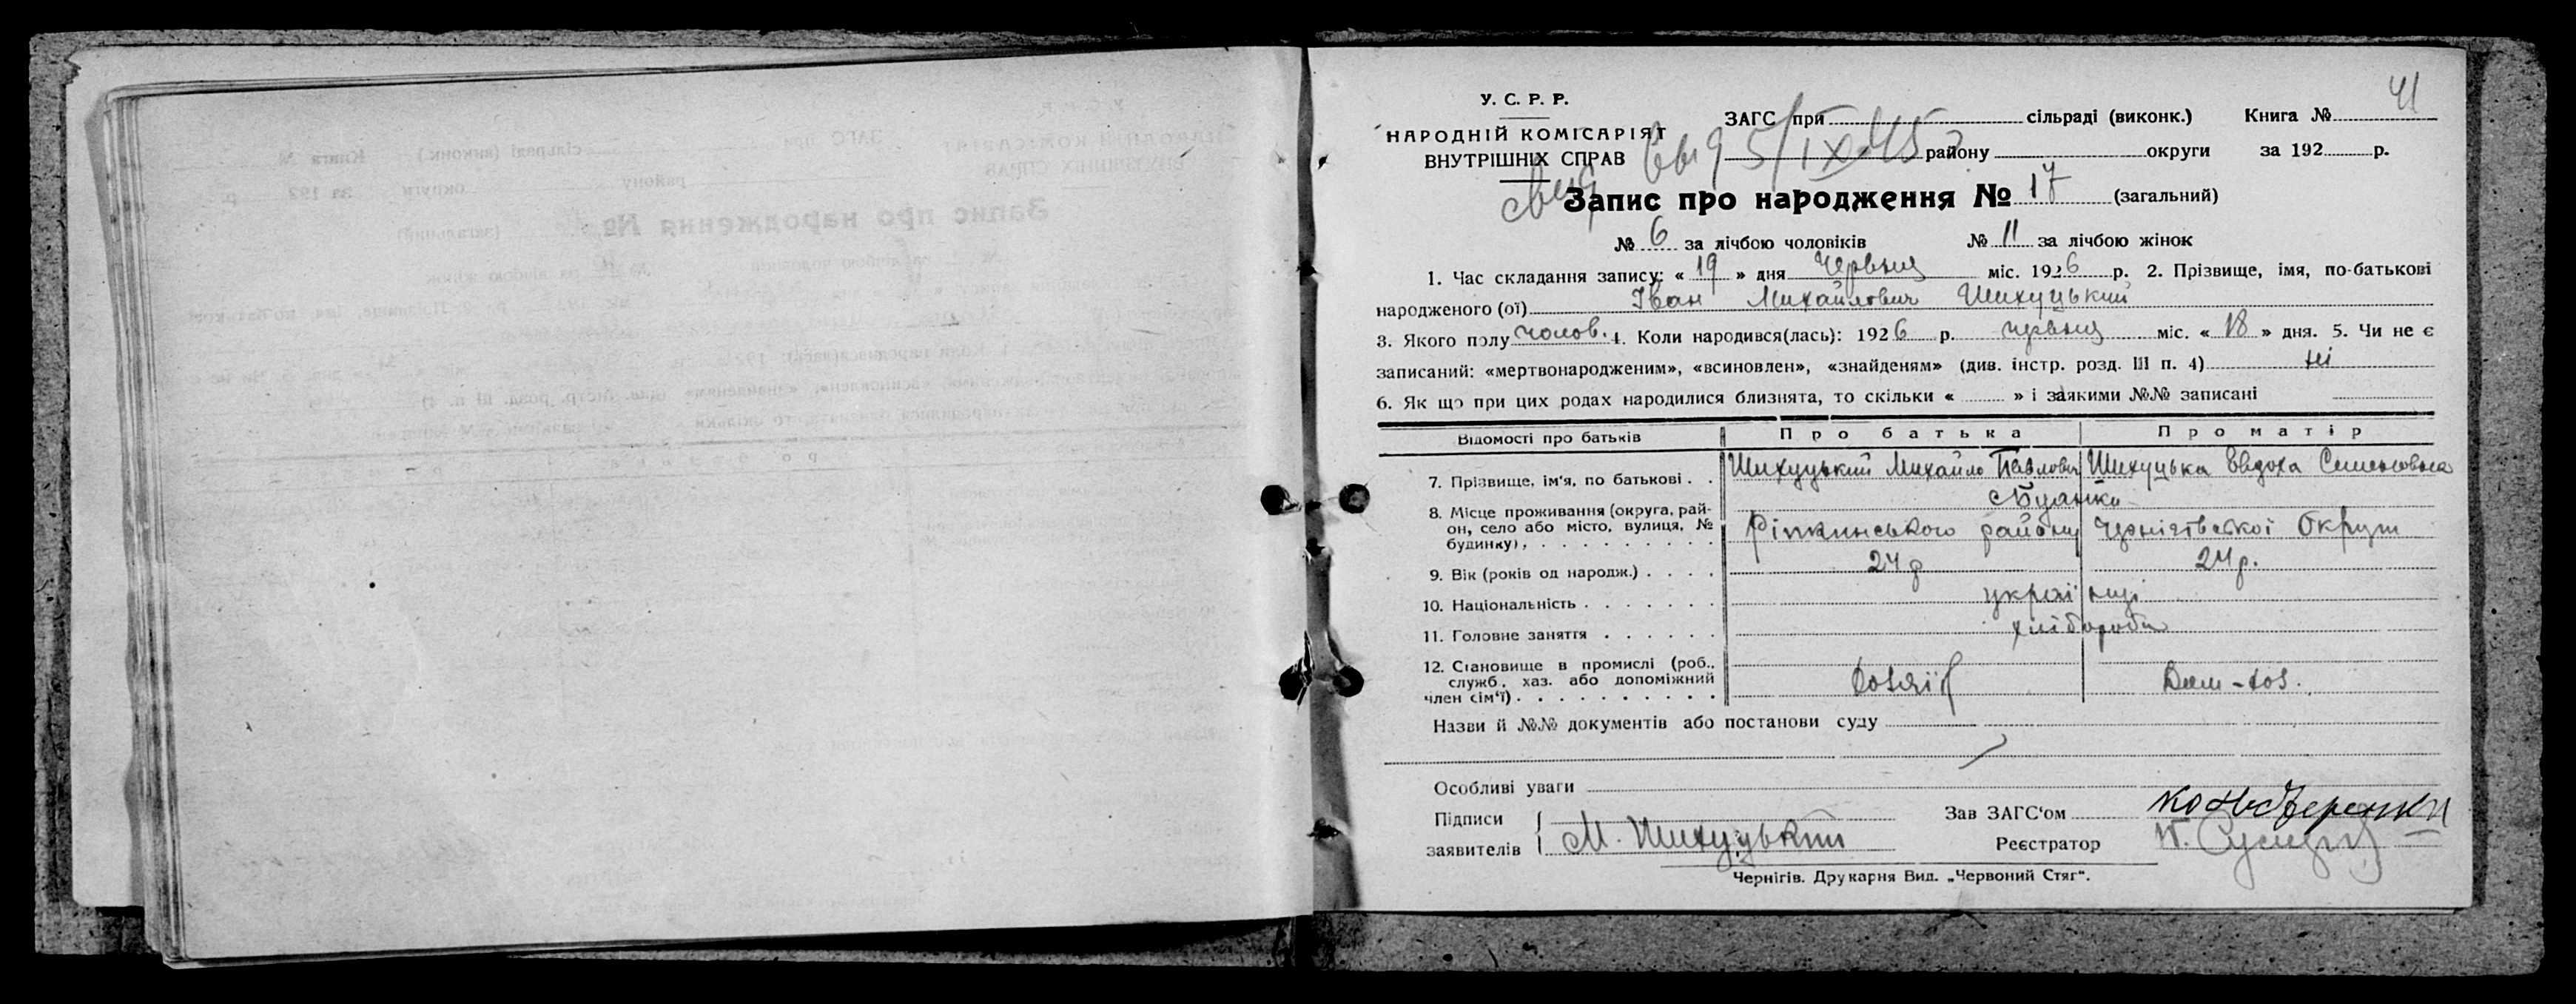 41
У. С. Р. Р.
НАРОДНІЙ КОМІСАРІЯТ
ВНУТРІШНІХ СПРАВ
ЗАГС при сільраді (виконк.) Книга №
району округи за 192 р.
5/IX 45
Запис про народження № 17 (загальний)
№ 6 за лічбою чоловіків № 11 за лічбою жінок
1. Час складання запису: « 19 » дня Червня міс. 1926 р. 2. Прізвище, імя, по-батькові
народженого (ої) Іван Михайлович Шихуцький
3. Якого полу чолов. 4. Коли народився(лась): 1926 р. червня міс. « 18 » дня. 5. Чи не є
записаний: «мертвонародженим», «всиновлен», «знайденям» (див. інстр. розд. III п. 4) ні
6. Як що при цих родах народилися близнята, то скільки « » і заякими №№ записані
Відомості про батьків Про батька Про матір
7. Прізвище, ім'я, по батькові . . Шихуцький Михайло Павлович Шихуцька Евдоха Семеновна
8. Місце проживання (округа, рай-
он, село або місто, вулиця, №
будинку), . . . . . . . . . Ріпкинського району Чернігівської Округи
9. Вік (років од народж.) . . . . 24 р 24 р.
10. Національність . . . . . . . українці
11. Головне заняття . . . . . . хлібороби
12. Становище в промислі (роб.,
служб., хаз. або допоміжний
член сім'ї) . . . . . . . . . .
Назви й №№ документів або постанови суду
Особливі уваги
Підписи
заявителів М. Шихуцький
Зав ЗАГС'ом
Реєстратор
Чернігів. Друкарня Вид. „Червоний Стяг".